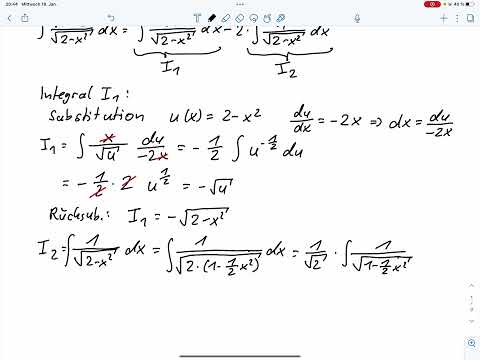 20:44 Mittwoch 19. Jan. 40 %
∫ 1/√(2-x²) dx = ∫ /√(2-x²) dx - 2 · ∫ 1/√(2-x²) dx
I₁ I₂
Integral I₁:
Substitution u(x) = 2-x² du/dx = -2x ⇒ dx = du/-2x
I₁ = ∫ x/√u du/-2x = - 1/2 ∫ u^(-1/2) du
= - 1/2 · 2 u^(1/2) = -√u
Rücksub.: I₁ = -√(2-x²)
I₂ = ∫ 1/√(2-x²) dx = ∫ 1/√(2·(1-1/2x²)) dx = 1/√2 · ∫ 1/√(1-1/2x²)